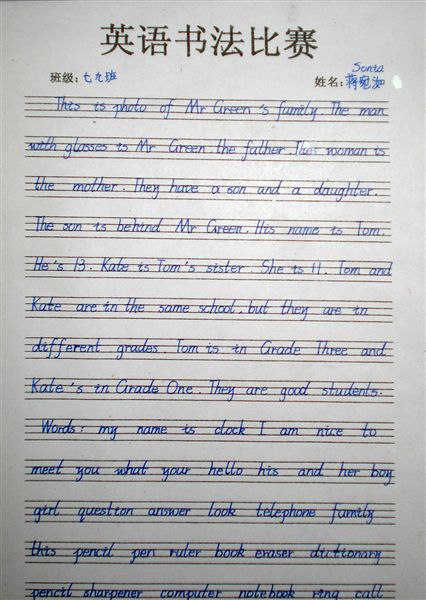 英语书法比赛
Sonia
班级：七九班 姓名：蒋宛
This is photo of Mr Green's family. The man
with glasses is Mr Green. the father. That woman is
the mother. They have a son and a daughter.
The son is behind Mr Green. His name is Tom.
He's 13. Kate is Tom's sister. She is 11. Tom and
Kate are in the same school, but they are in
different grades. Tom is in Grade Three and
Kate's in Grade One. They are good students.
Words: my name is clock I am nice to
meet you what your hello his and her boy
girl question answer look telephone family
this pencil pen ruler book eraser dictionary
pencil sharpener computer notebook ring call